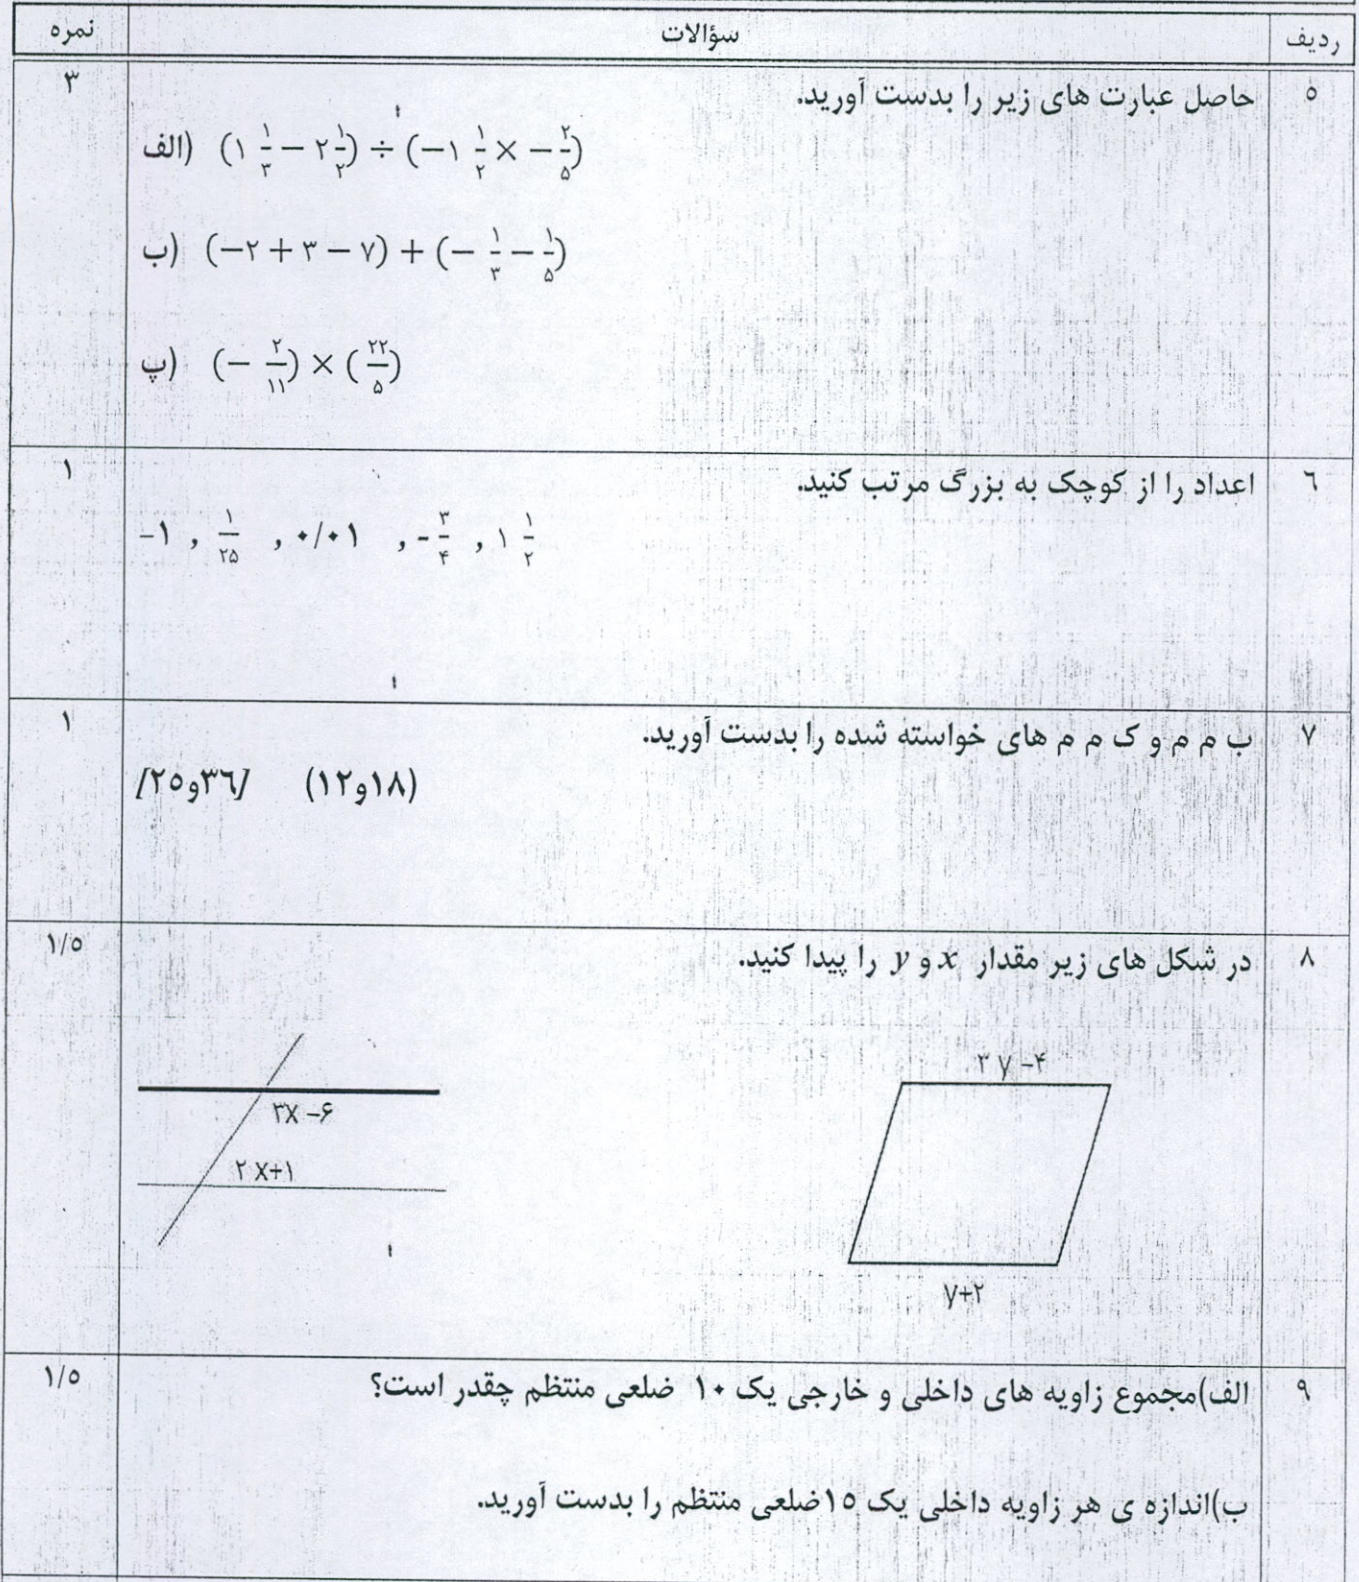 ردیف سؤالات نمره
۵ حاصل عبارت های زیر را بدست آورید. ۳
الف) (۱ ۱/۳ − ۲ ۱/۲) ÷ (−۱ ۱/۲ × − ۲/۵)
ب) (−۲ + ۳ − ۷) + (− ۱/۳ − ۱/۵)
پ) (− ۲/۱۱) × (۲۲/۵)
۶ اعداد را از کوچک به بزرگ مرتب کنید. ۱
-۱ , ۱/۲۵ , ۰/۰۱ , -۳/۴ , ۱ ۱/۲
۷ ب م م و ک م م های خواسته شده را بدست آورید. ۱
[۳۶و۲۵] (۱۸و۱۲)
۸ در شکل های زیر مقدار x و y را پیدا کنید. ۱/۵
۳ y -۴
۳x -۶
۲ x+۱
y+۲
۹ الف)مجموع زاویه های داخلی و خارجی یک ۱۰ ضلعی منتظم چقدر است؟ ۱/۵
ب)اندازه ی هر زاویه داخلی یک ۱۵ضلعی منتظم را بدست آورید.